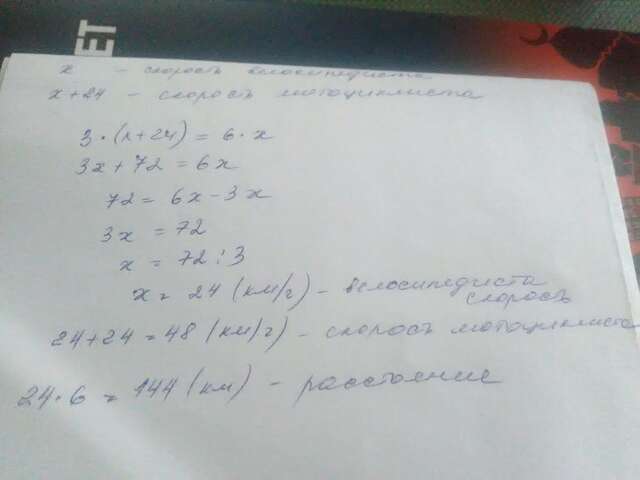 ET
x - скорость велосипедиста
x+24 - скорость мотоциклиста
3·(x+24) = 6·x
3x+72 = 6x
72 = 6x-3x
3x = 72
x = 72:3
x = 24 (км/г) - велосипедиста
скорость
24+24 = 48 (км/г) - скорость мотоциклиста
24·6 = 144 (км) - расстояние